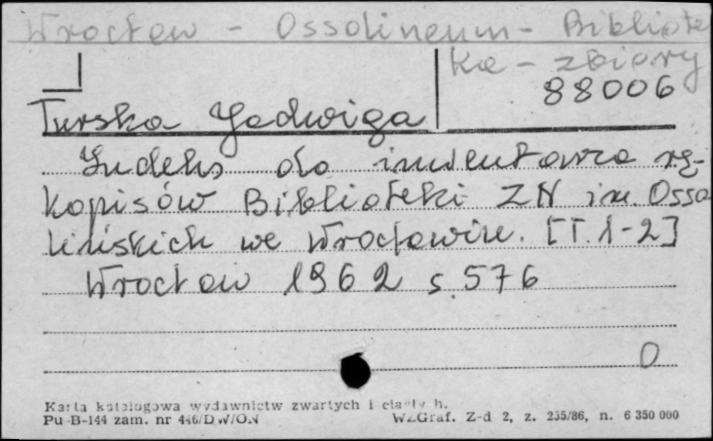 Wrocław - Ossolineum - Bibliote
ka - zbiory
88006
Turska Jadwiga
Indeks do inwentarza rę-
kopisów Biblioteki ZN im. Osso
lińskich we Wrocławiu. [T. 1-2]
Wrocław 1962 s. 576
0
Karta katalogowa wydawnictw zwartych i ciągłych.
Pu-B-144 zam. nr 446/DW/ON WZGraf. Z-d 2, z. 235/86, n. 6 350 000